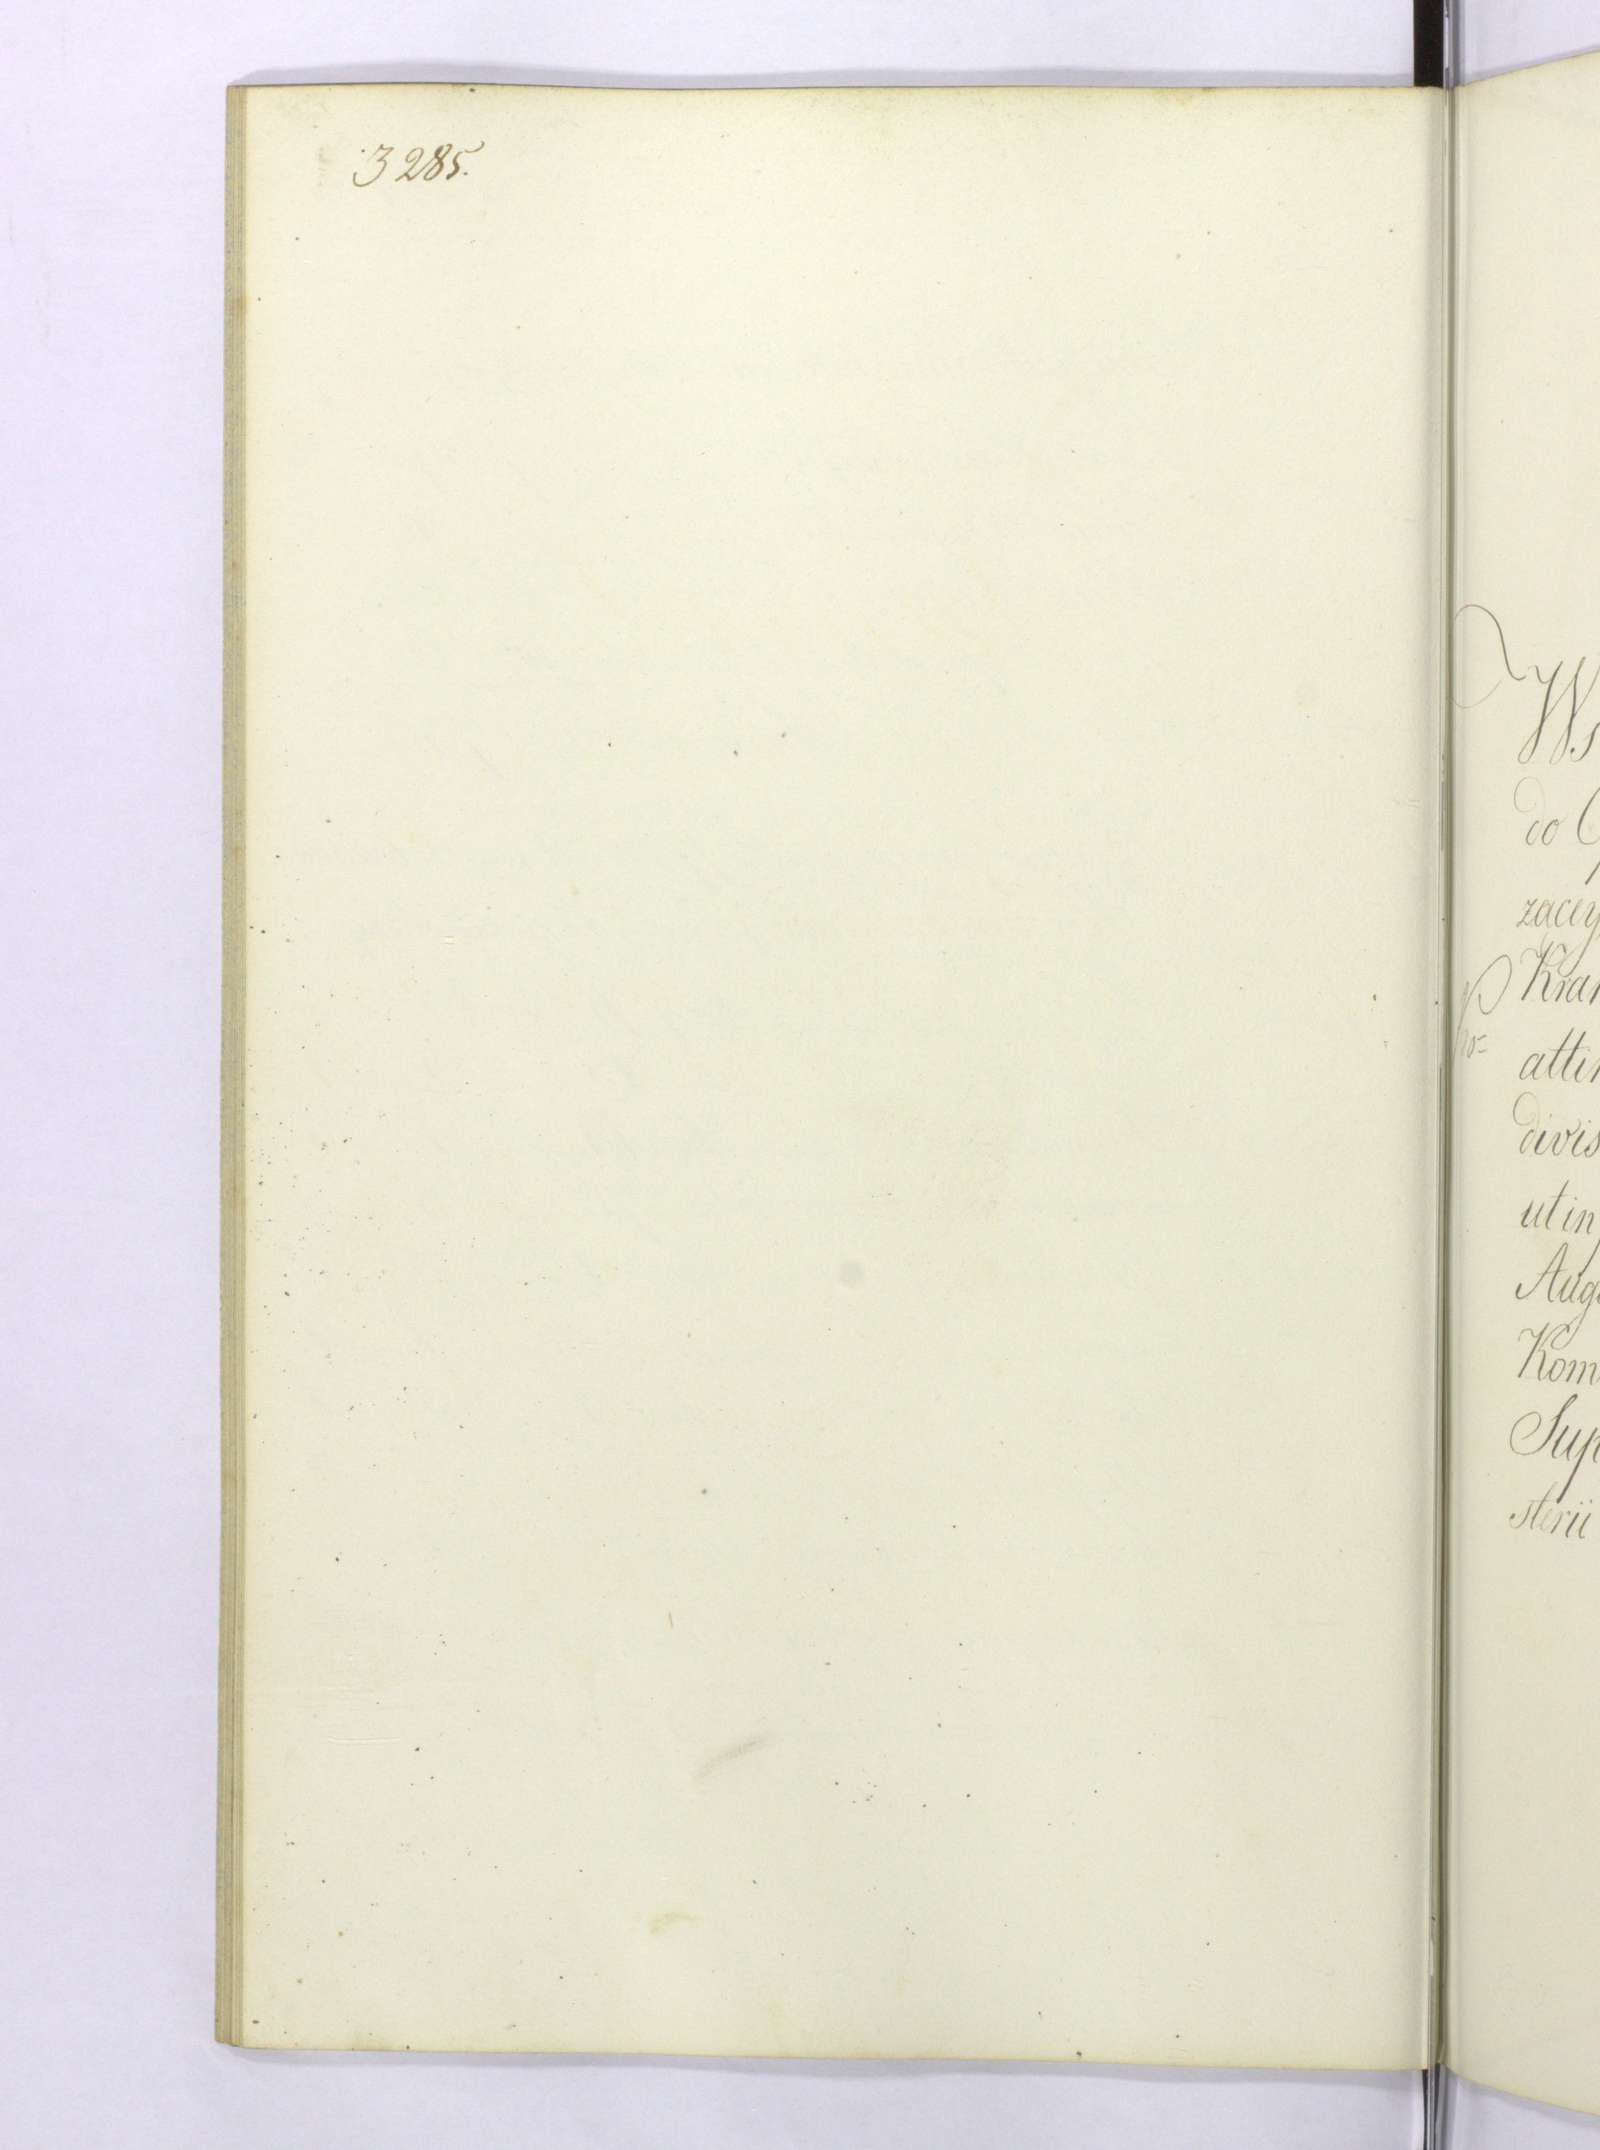 3285.
Ws
do
zacey
Kran
attin
divis
utin
Aug
Kom
Sup
sterii